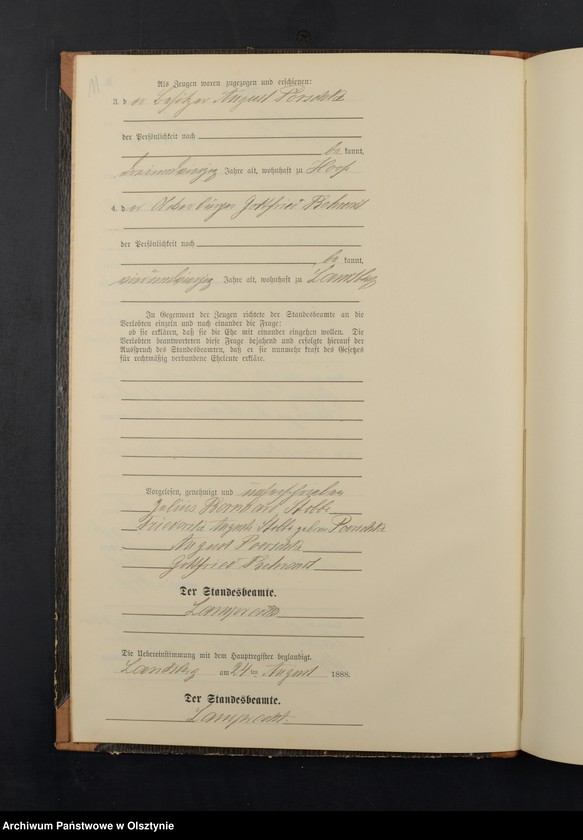 Als Zeugen waren zugezogen und erschienen:
3. der Besitzer August Porschke
der Persönlichkeit nach
be kannt,
Jahre alt, wohnhaft zu Hoof
4. der Ackerbürger Gottfried Behrent
der Persönlichkeit nach
be kannt,
Jahre alt, wohnhaft zu Landsberg
In Gegenwart der Zeugen richtete der Standesbeamte an die
Verlobten einzeln und nach einander die Frage:
ob sie erklären, daß sie die Ehe mit einander eingehen wollen. Die
Verlobten beantworteten diese Frage bejahend und erfolgte hierauf der
Ausspruch des Standesbeamten, daß er sie nunmehr kraft des Gesetzes
für rechtmäßig verbundene Eheleute erkläre.
Vorgelesen, genehmigt und unterschrieben
Julius Bernhard
August geborene Porschke
August Porschke
Gottfried Behrent
Der Standesbeamte.
Lamprecht
Die Uebereinstimmung mit dem Hauptregister beglaubigt.
Landsberg am 24ten August 1888.
Der Standesbeamte.
Lamprecht
Archiwum Państwowe w Olsztynie